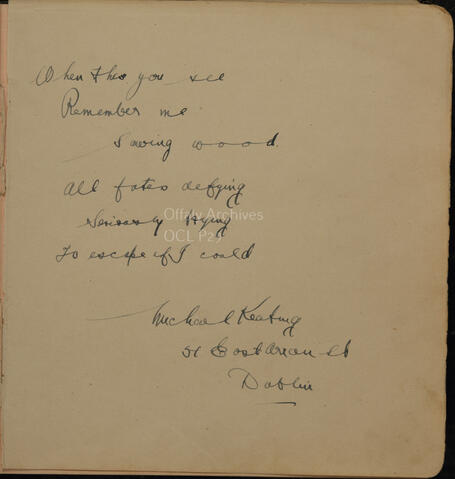 When this you see
Remember me
Sawing wood.
All fates defying
Seriously trying
To escape if I could
Offaly Archives
OCL P29
Michael Keating
51 East Arran St
Dublin